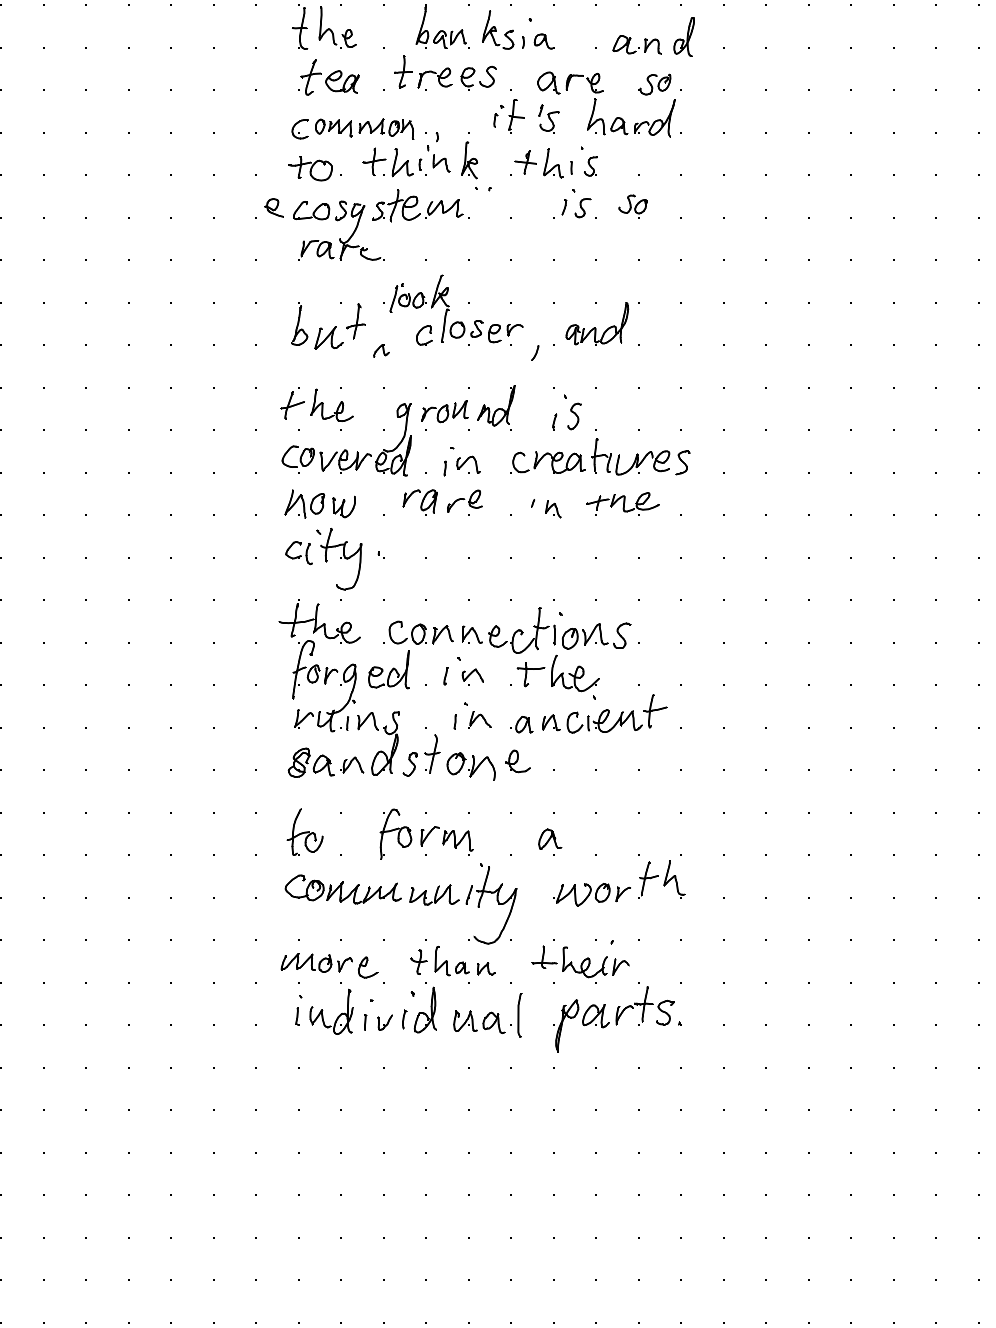 the banksia and
tea trees are so
common, it's hard
to think this
ecosystem is so
rare
but look closer, and
the ground is
covered in creatures
now rare in the
city.
the connections
forged in the
ruins in ancient
sandstone
to form a
community worth
more than their
individual parts.